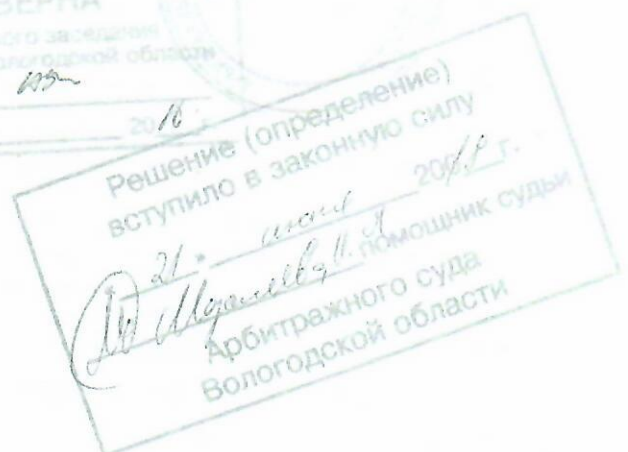 ВЕРНА
ного заседания
Вологодской области
2018 г.
Решение (определение)
вступило в законную силу
21 " июня 2018 г.
помощник судьи
Арбитражного суда
Вологодской области